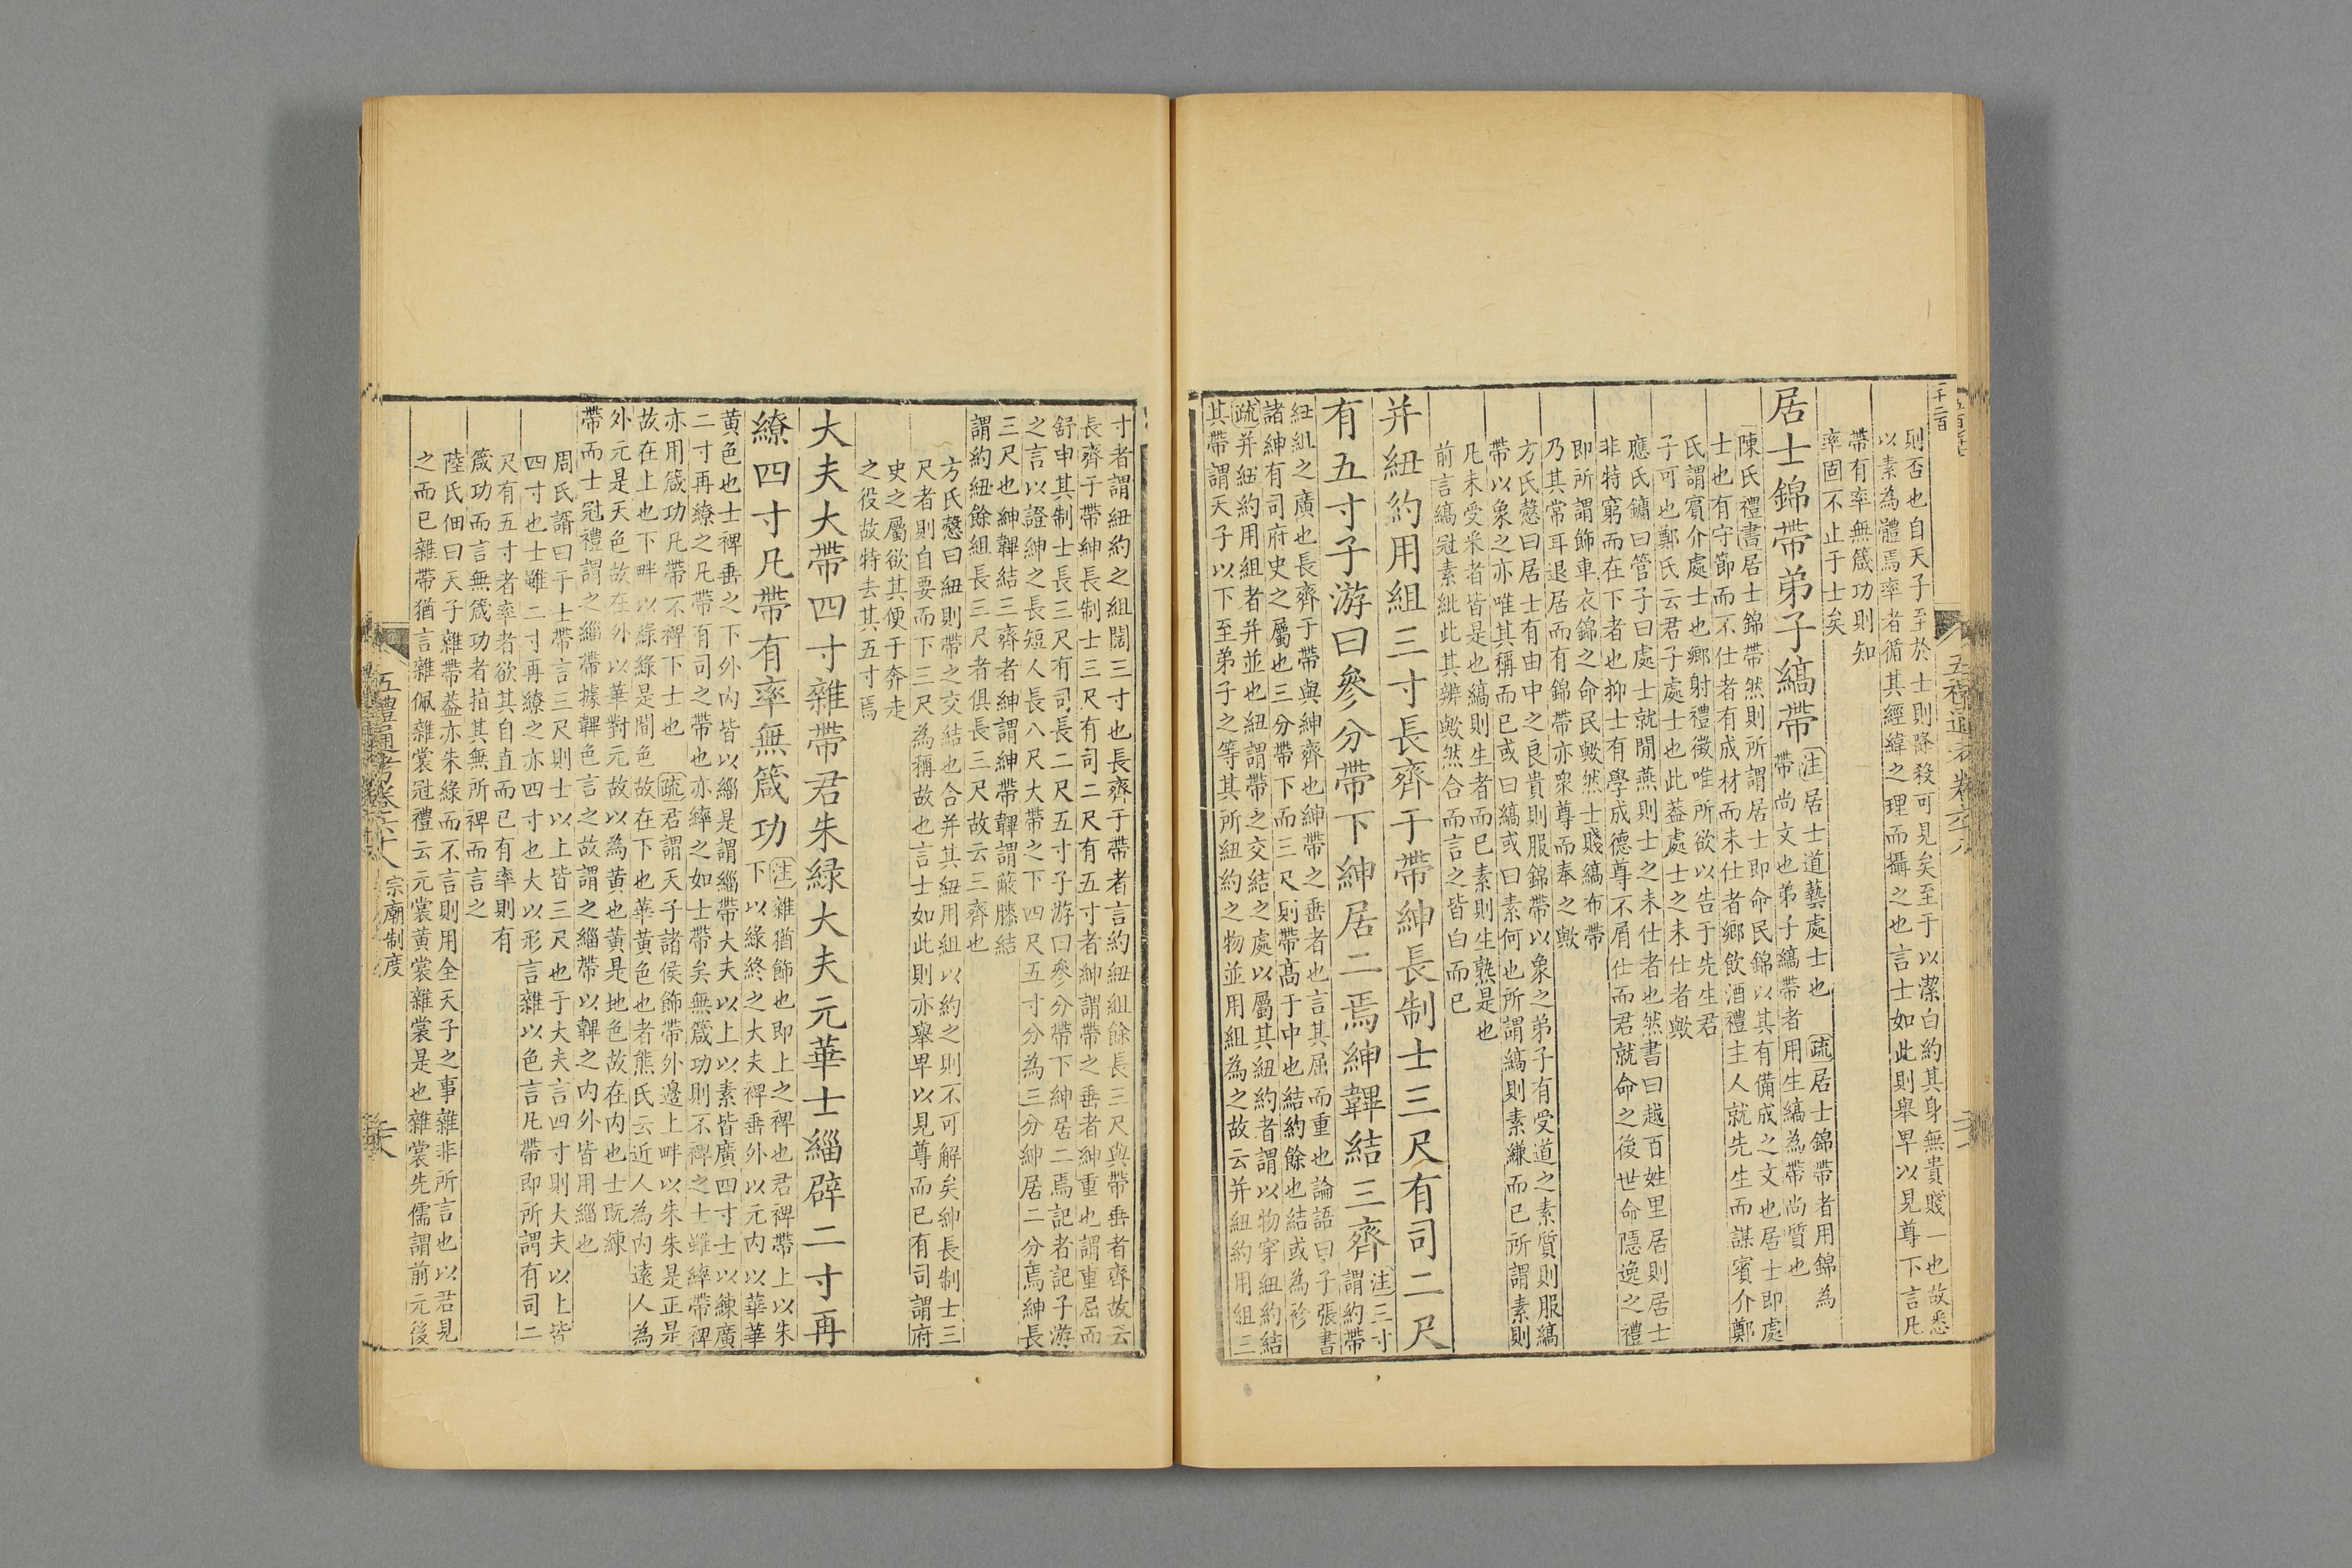 則否也自天子至於士則降殺可見矣至于以潔白約其身無貴賤一也故悉
以素為體焉率者循其經緯之理而攝之也言士如此則舉卑以見尊下言凡
帶有率無箴功則知
率固不止于士矣
居士錦帶弟子縞帶
注居士道藝處士也 疏居士錦帶者用錦為
帶尚文也弟子縞帶者用生縞為帶尚質也
陳氏禮書居士錦帶然則所謂居士即命民錦以其有備成之文也居士即處
士也有守節而不仕者有成材而未仕者鄉飲酒禮主人就先生而謀賓介鄭
氏謂賓介處士也鄉射禮徵唯所欲以告于先生君
子可也鄭氏云君子處士也此蓋處士之未仕者歟
應氏鏞曰管子曰處士就閒燕則士之未仕者也然書曰越百姓里居則居士
非特窮而在下者也抑士有學成德尊不屑仕而君就命之後世命隱逸之禮
即所謂飾車衣錦之命民歟然士賤縞布帶
乃其常耳退居而有錦帶亦衆尊而奉之歟
方氏慤曰居士有由中之良貴則服錦帶以象之弟子有受道之素質則服縞
帶以象之亦唯其稱而已或曰縞或曰素何也所謂縞則素縑而已所謂素則
凡未受采者皆是也縞則生者而已素則生熟是也
前言縞冠素紕此其辨歟然合而言之皆白而已
并紐約用組三寸長齊于帶紳長制士三尺有司二尺
有五寸子游曰參分帶下紳居二焉紳韠結三齊
注三寸
謂約帶
紐組之廣也長齊于帶與紳齊也紳帶之垂者也言其屈而重也論語曰子張書
諸紳有司府史之屬也三分帶下而三尺則帶高于中也結約餘也結或為袗
疏并紐約用組者并並也紐謂帶之交結之處以屬其紐約者謂以物穿紐約結
其帶謂天子以下至弟子之等其所紐約之物並用組為之故云并紐約用組三
寸者謂紐約之組闊三寸也長齊于帶者言約紐組餘長三尺與帶垂者齊故云
長齊于帶紳長制士三尺有司二尺有五寸者紳謂帶之垂者紳重也謂重屈而
舒申其制士長三尺有司長二尺五寸子游曰參分帶下紳居二焉記者記子游
之言以證紳之長短人長八尺大帶之下四尺五寸分為三分紳居二分焉紳長
三尺也紳韠結三齊者紳謂紳帶韠謂蔽膝結
謂約紐餘組長三尺者俱長三尺故云三齊也
方氏慤曰紐則帶之交結也合并其紐用組以約之則不可解矣紳長制士三
尺者則自要而下三尺為稱故也言士如此則亦舉卑以見尊而已有司謂府
史之屬欲其便于奔走
之役故特去其五寸焉
大夫大帶四寸雜帶君朱綠大夫元華士緇辟二寸再
繚四寸凡帶有率無箴功
注雜猶飾也即上之裨也君裨帶上以朱
下以綠終之大夫裨垂外以元內以華華
黃色也士裨垂之下外內皆以緇是謂緇帶大夫以上以素皆廣四寸士以練廣
二寸再繚之凡帶有司之帶也亦繂之如士帶矣無箴功則不裨之士雖繂帶裨
亦用箴功凡帶不裨下士也 疏君謂天子諸侯飾帶外邊上畔以朱朱是正是
故在上也下畔以綠綠是間色故在下也華黃色也者熊氏云近人為內遠人為
外元是天色故在外以華對元故以為黃也黃是地色故在內也士既練
帶而士冠禮謂之緇帶據韠色言之故謂之緇帶以韠之內外皆用緇也
周氏諝曰于士帶言三尺則士以上皆三尺也于大夫言四寸則大夫以上皆
四寸也士雖二寸再繚之亦四寸也大以形言雜以色言凡帶即所謂有司二
尺有五寸者率者欲其自直而已有率則有
箴功而言無箴功者指其無所裨而言之
陸氏佃曰天子雜帶蓋亦朱綠而不言則用全天子之事雜非所言也以君見
之而已雜帶猶言雜佩雜裳冠禮云元裳黃裳雜裳是也雜裳先儒謂前元後
五禮通考卷六十八 宗廟制度